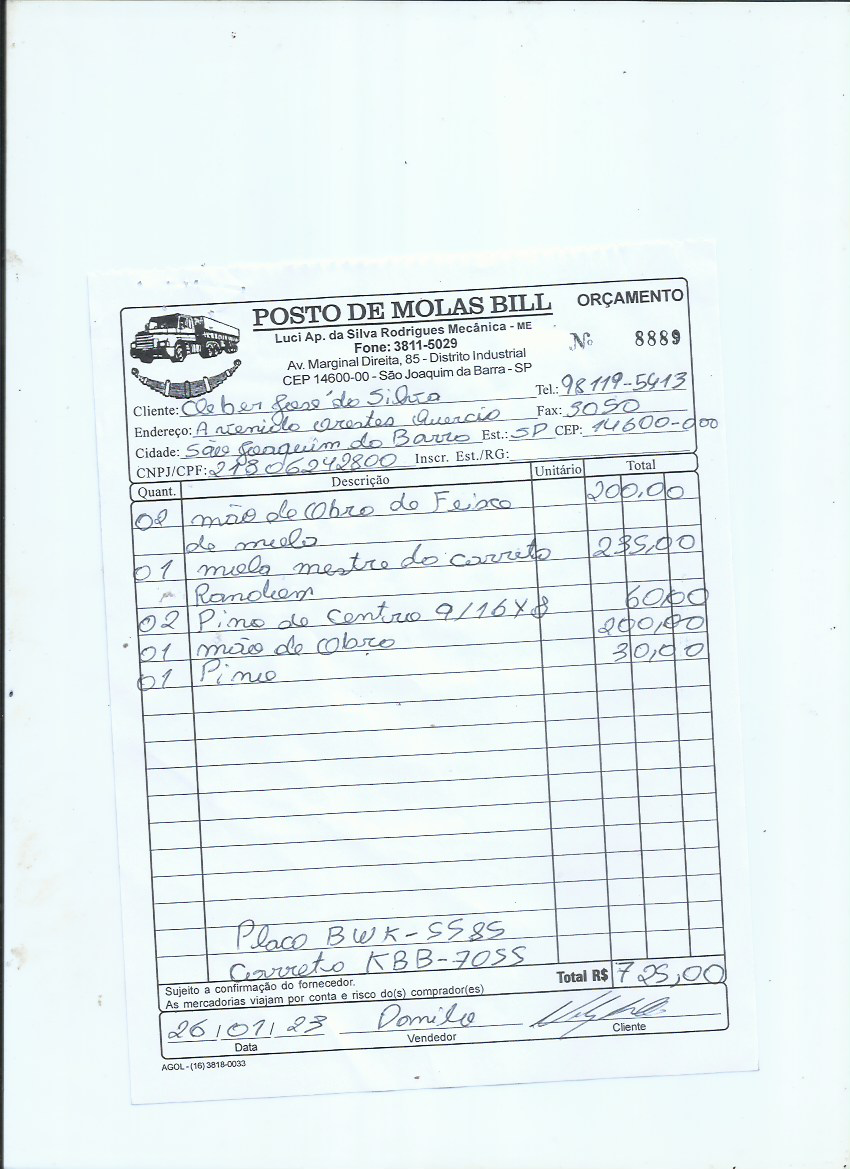 POSTO DE MOLAS BILL
ORÇAMENTO
Luci Ap. da Silva Rodrigues Mecânica - ME
Fone: 3811-5029
Nº 8889
Av. Marginal Direita, 85 - Distrito Industrial
CEP 14600-00 - São Joaquim da Barra - SP
Cliente: Cleber José da Silva Tel.: 98119-5413
Endereço: Avenida Orestes Quercia Fax: 3050
Cidade: São Joaquim da Barra Est.: SP CEP: 14600-000
CNPJ/CPF: 21806242800 Inscr. Est./RG:
Quant. Descrição Unitário Total
02 mão de Obra de Feixo 200,00
de mola
01 mola mestre da carreta 235,00
Randon
02 Pino de Centro 9/16 X 8 60,00
01 mão de Obra 200,00
01 Pino 30,00
Placa BWK-5585
Carreta KBB-7055
Sujeito a confirmação do fornecedor.
As mercadorias viajam por conta e risco do(s) comprador(es)
Total R$ 725,00
26/01/23 Danilo
Data Vendedor Cliente
AGOL - (16) 3818-0033